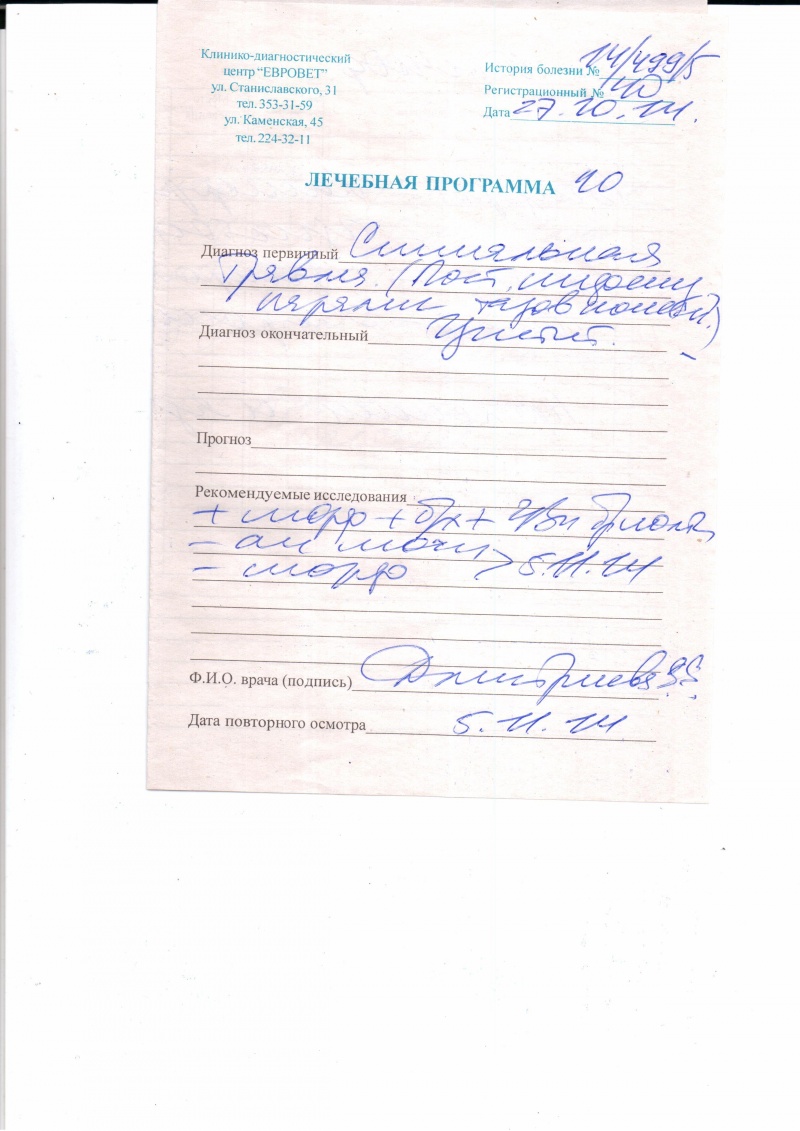 Клинико-диагностический
центр “ЕВРОВЕТ”
ул. Станиславского, 31
тел. 353-31-59
ул. Каменская, 45
тел. 224-32-11
История болезни № 14/499/5
Регистрационный № 40
Дата 27.10.14.
ЛЕЧЕБНАЯ ПРОГРАММА
Диагноз первичный Спинальная
травма. (Пост.
паралич тазов конечн.)
Диагноз окончательный Цистит.
Прогноз
Рекомендуемые исследования
+ морфо + б/х +
- ан мочи
- морфо > 5.11.14
Ф.И.О. врача (подпись) Дмитриева
Дата повторного осмотра 5.11.14